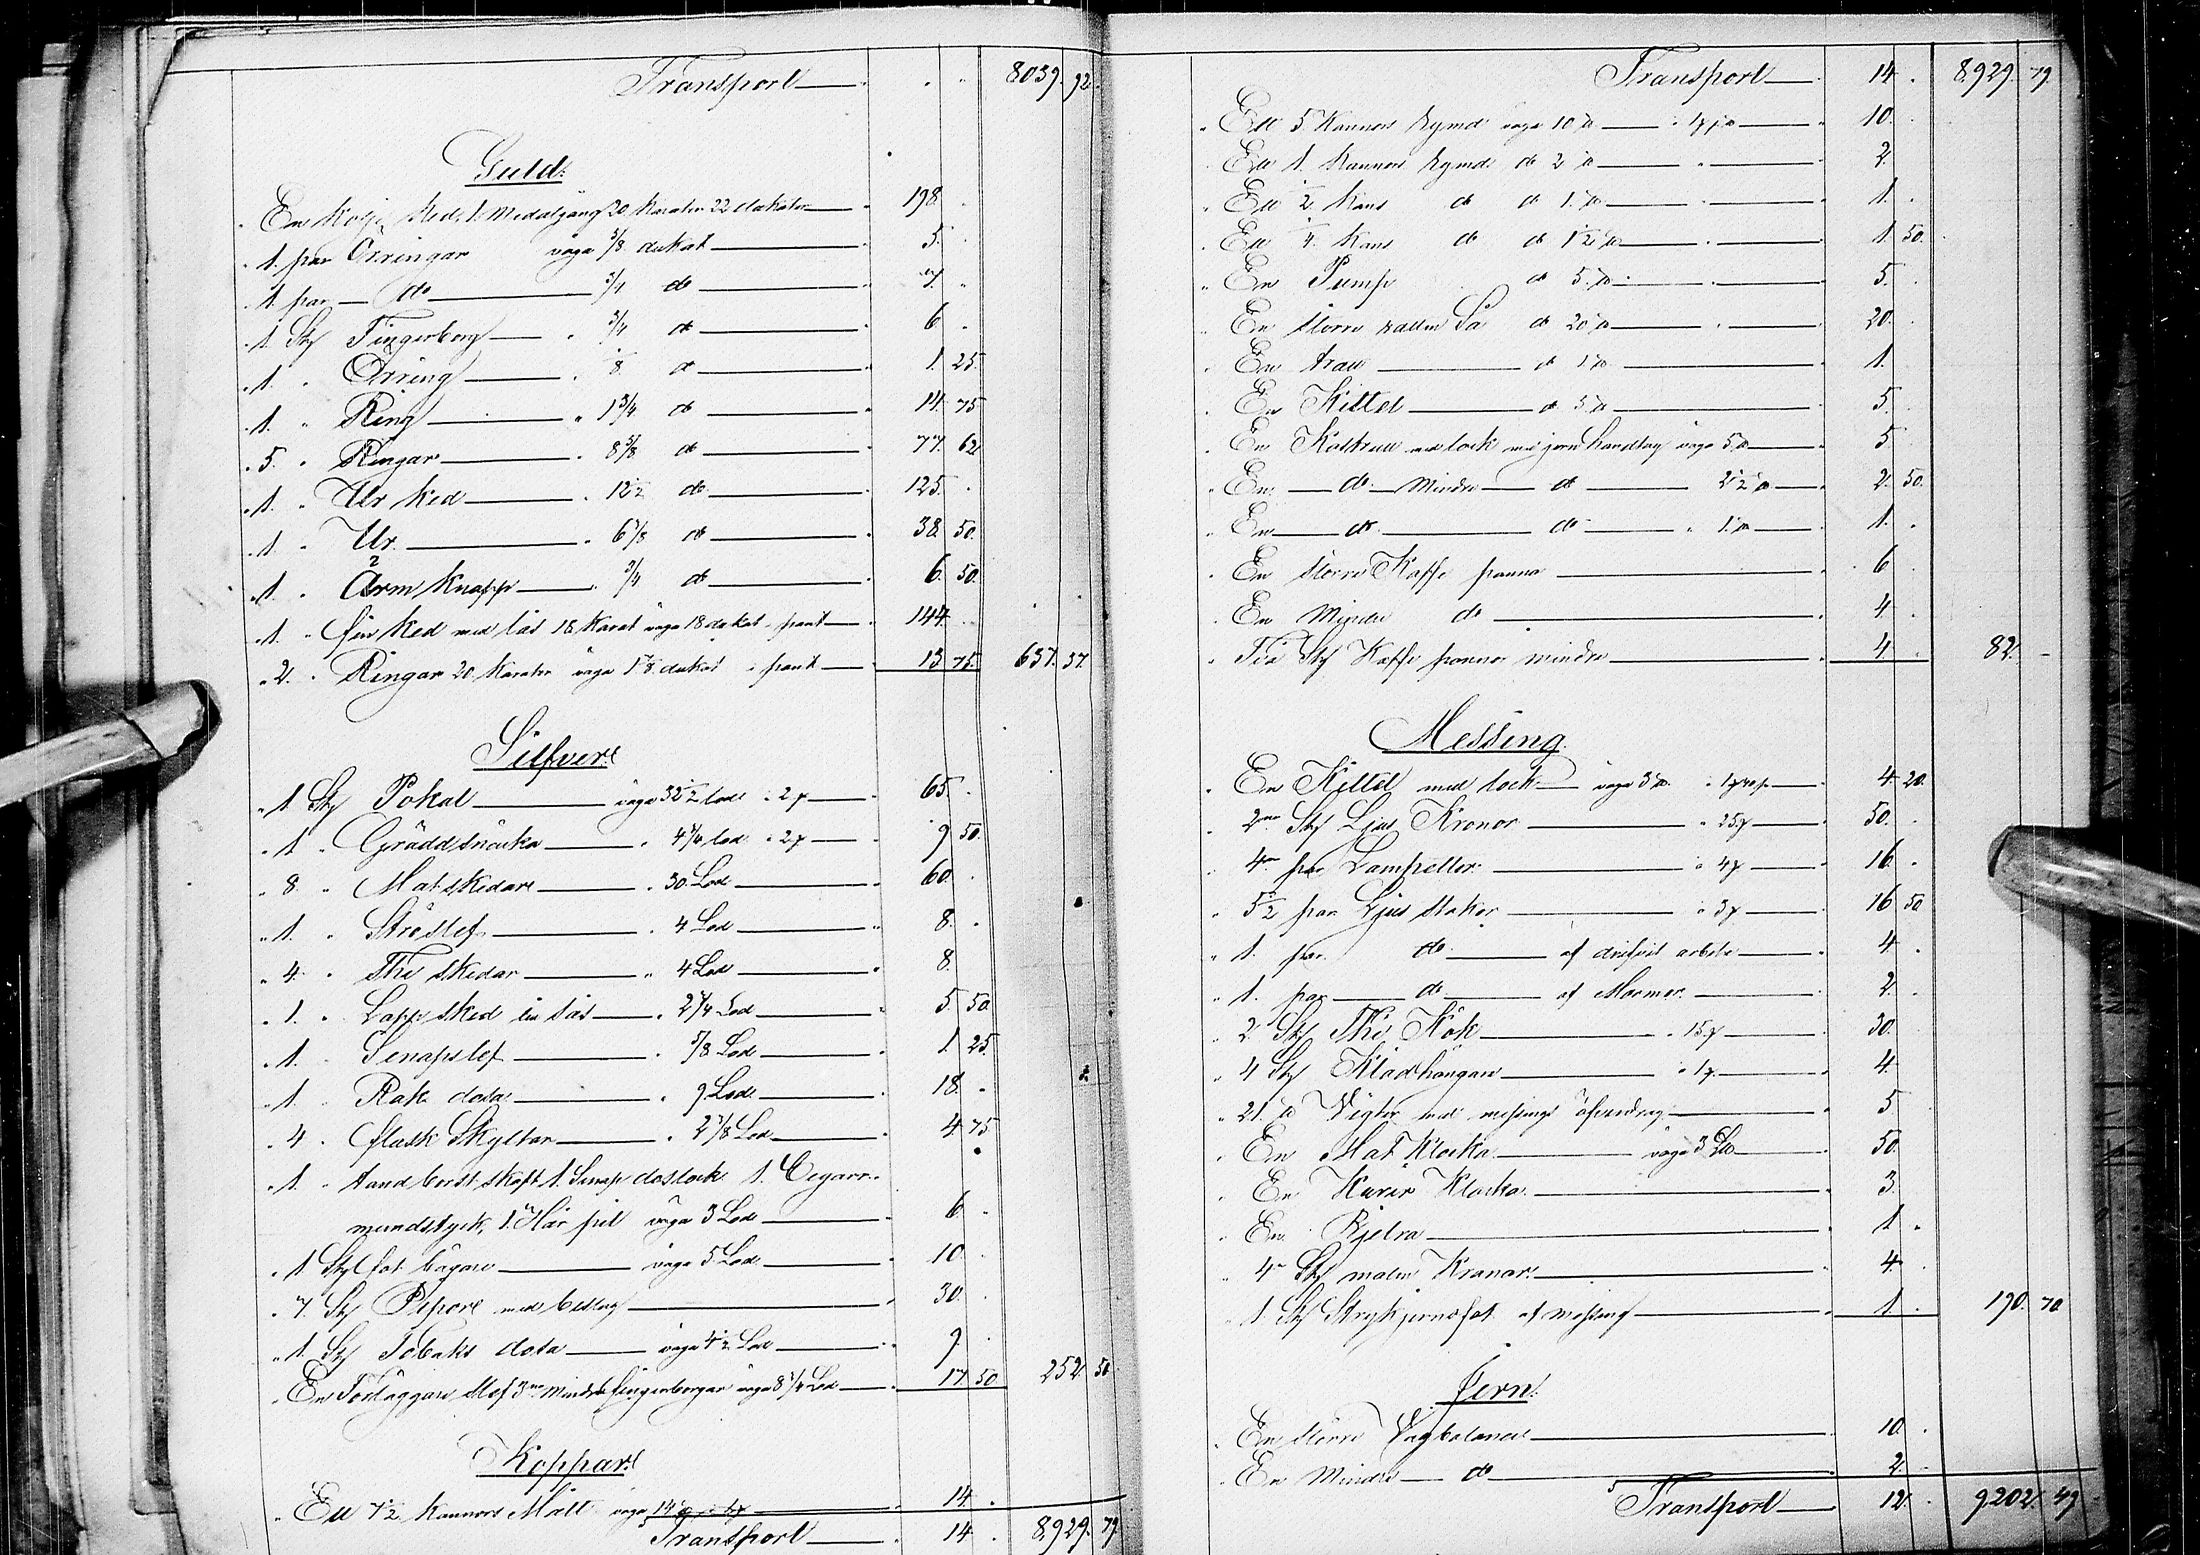 Transport 8039. 92.
Guld:
En Ked, 1. Medalgång 20 Karater 22 dukater 198.
1. par Örringar väga 5/8 dukat 5.
1. par do 3/4 do 7.
1. St Fingerborg 3/4 do 6.
1. " Örring 1/8 do 1. 25.
1. " Ring " 1 3/4 do 14. 75
5. " Ringar " 8 5/8 do 77. 62
1. " Ur ked " 12 1/2 do 125.
1. " Ur. " 6 1/8 do 38. 50.
1. " Arm Knapp 3/4 do 6. 50.
1. " Ked med lås 18 Karat väga 18 dukat 144.
2. " Ringar 20 Karater väga 1 5/8 dukat 13 75. 637. 37.
Silfver:
1 St Pokal väga 32 1/2 lod 2 65.
1 " Gräddsnäcka " 4 3/4 lod 2 9 50.
8. " Matskedar " 30 Lod 60.
1. " Ströslef " 4 Lod 8.
4. " The skedar " 4 Lod 8.
1. " Lapp sked 2 3/4 Lod 5. 50.
1. " Senapslef " 5/8 Lod 1. 25.
1. " Rak dosa " 9 Lod 18.
4. " flask Skyltar " 2 3/8 Lod 4 75
1. " tand borst skaft 1. Senap doslock 1. Cegarr
mundstyck, 1. Hår pil väga 3 Lod 6.
1 St fot bägare väga 5 Lod 10
7. St Pipor med beslag 30.
1. St Tobaks dosa väga 4 1/2 Lod 9.
En Förläggare slef 3ne mindre fingerborgar väga 8 3/4 Lod 17. 50 252. 50
Koppar:
Ett 7 1/2 Kannors Mått väga 14 14.
Transport 14. 8,929. 79
Transport 14. 8,929. 79.
Ett 5 Kannors Rymd väga 10 10.
Ett 1. Kannors Rymd do 2 2.
Ett 1/2 Kans do do 1. 1.
Ett 1/4 Kans do do 1 1/2 1. 50.
En Pump do 5. 5.
En större Så do 20 20.
En tratt do 1 1.
En Kittel do 5 5.
En med lock med jern handtag väga 5 5
En do Mindre do 2 1/2 2. 50.
En do do 1. 1.
En större Kaffe panna 6
En Mindre do 4.
Två St Kaffe pannor mindre 4. 82.
Messing.
En Kittel med lock väga 3 4. 20.
2ne St Ljus Kronor 25 50.
4ra par Lampetter 4 16.
5 1/2 par Ljus stakar 3 16 50
1. par do af drifvit arbete 4.
1. par do af Marmor 2.
2 St The Kök 15 30.
4 St Klädhängare 1 4.
21. Vigter med messings öfverdrag 5
En Mat Klocka väga 3 50.
En Klocka 3.
En Bjelra 1.
4ra St malm Kranar 4.
1 St Strykjernsfot af messing 1. 190. 70
Jern.
En större Vagbalance 10.
En Mindre do 2.
Transport 12. 9,202. 49